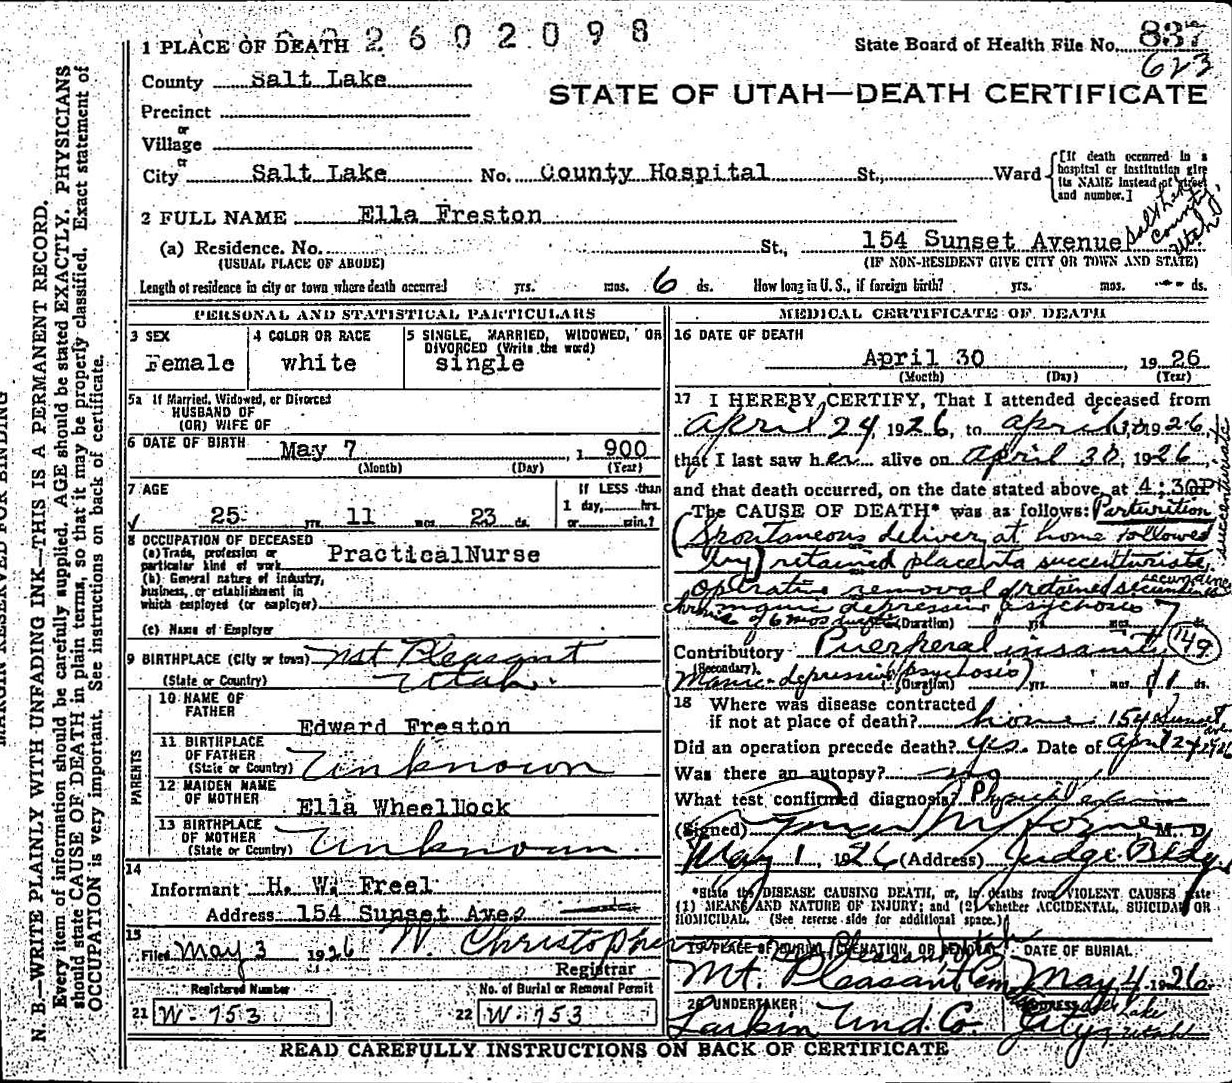 2602098
State Board of Health File No. 837
623
1 PLACE OF DEATH
STATE OF UTAH—DEATH CERTIFICATE
County Salt Lake
Precinct
or
Village
or
City Salt Lake No. County Hospital St., Ward
[If death occurred in a
hospital or institution give
its NAME instead of street
and number.]
2 FULL NAME Ella Freston
(a) Residence. No. St., 154 Sunset Avenue Salt Lake County, Utah
(USUAL PLACE OF ABODE) (IF NON-RESIDENT GIVE CITY OR TOWN AND STATE)
Length of residence in city or town where death occurred yrs. mos. 6 ds. How long in U.S., if foreign birth? yrs. mos. ds.
PERSONAL AND STATISTICAL PARTICULARS
3 SEX
Female
4 COLOR OR RACE
white
5 SINGLE, MARRIED, WIDOWED, OR
DIVORCED (Write the word)
single
5a If Married, Widowed, or Divorced
HUSBAND OF
(OR) WIFE OF
6 DATE OF BIRTH May 7, 1900
(Month) (Day) (Year)
7 AGE
25 yrs. 11 mos. 23 ds.
If LESS than
1 day, hrs.
or min.?
8 OCCUPATION OF DECEASED
(a) Trade, profession or
particular kind of work PracticalNurse
(b) General nature of industry,
business, or establishment in
which employed (or employer)
(c) Name of Employer
9 BIRTHPLACE (City or town) Mt Pleasant
(State or Country) Utah.
PARENTS
10 NAME OF
FATHER
Edward Freston
11 BIRTHPLACE
OF FATHER
(State or Country) Unknown
12 MAIDEN NAME
OF MOTHER
Ella Wheellock
13 BIRTHPLACE
OF MOTHER
(State or Country) Unknown.
14
Informant H. W. Freel
Address 154 Sunset Ave
15
Filed May 3 1926 W. Christopher
Registrar
Registered Number No. of Burial or Removal Permit
21 W-753 22 W-753
MEDICAL CERTIFICATE OF DEATH
16 DATE OF DEATH
April 30 1926
(Month) (Day) (Year)
17 I HEREBY CERTIFY, That I attended deceased from
April 24, 1926, to April 30 1926,
that I last saw her alive on April 30, 1926
and that death occurred, on the date stated above, at 4:30P
The CAUSE OF DEATH* was as follows: Parturition
(Spontaneous deliver at home followed
by) retained placenta succenturiate
operative removal of retained secundines
manic depressive psychosis 7
of 6 mos (Duration) yrs. mos. ds.
Contributory Puerperal insanity 149
(Secondary)
Manic-depressive (psychosis)
(Duration) yrs. mos. 11 ds.
18 Where was disease contracted
if not at place of death? home 154 Sunset ave
Did an operation precede death? yes. Date of April 24 1926
Was there an autopsy? no
What test confirmed diagnosis? Physical exam
(Signed) M. D.
May 1, 1926 (Address) Judge Bldg.
*State the DISEASE CAUSING DEATH, or, in deaths from VIOLENT CAUSES state
(1) MEANS AND NATURE OF INJURY; and (2) whether ACCIDENTAL, SUICIDAL OR
HOMICIDAL. (See reverse side for additional space.)
19 PLACE OF BURIAL, CREMATION, OR REMOVAL DATE OF BURIAL
Mt. Pleasant Cem May 4 1926
20 UNDERTAKER ADDRESS
Larkin Und. Co. Salt Lake City, Utah
READ CAREFULLY INSTRUCTIONS ON BACK OF CERTIFICATE
MARGIN RESERVED FOR BINDING
N. B.—WRITE PLAINLY WITH UNFADING INK—THIS IS A PERMANENT RECORD.
Every item of information should be carefully supplied. AGE should be stated EXACTLY. PHYSICIANS
should state CAUSE OF DEATH in plain terms, so that it may be properly classified. Exact statement of
OCCUPATION is very important. See instructions on back of certificate.